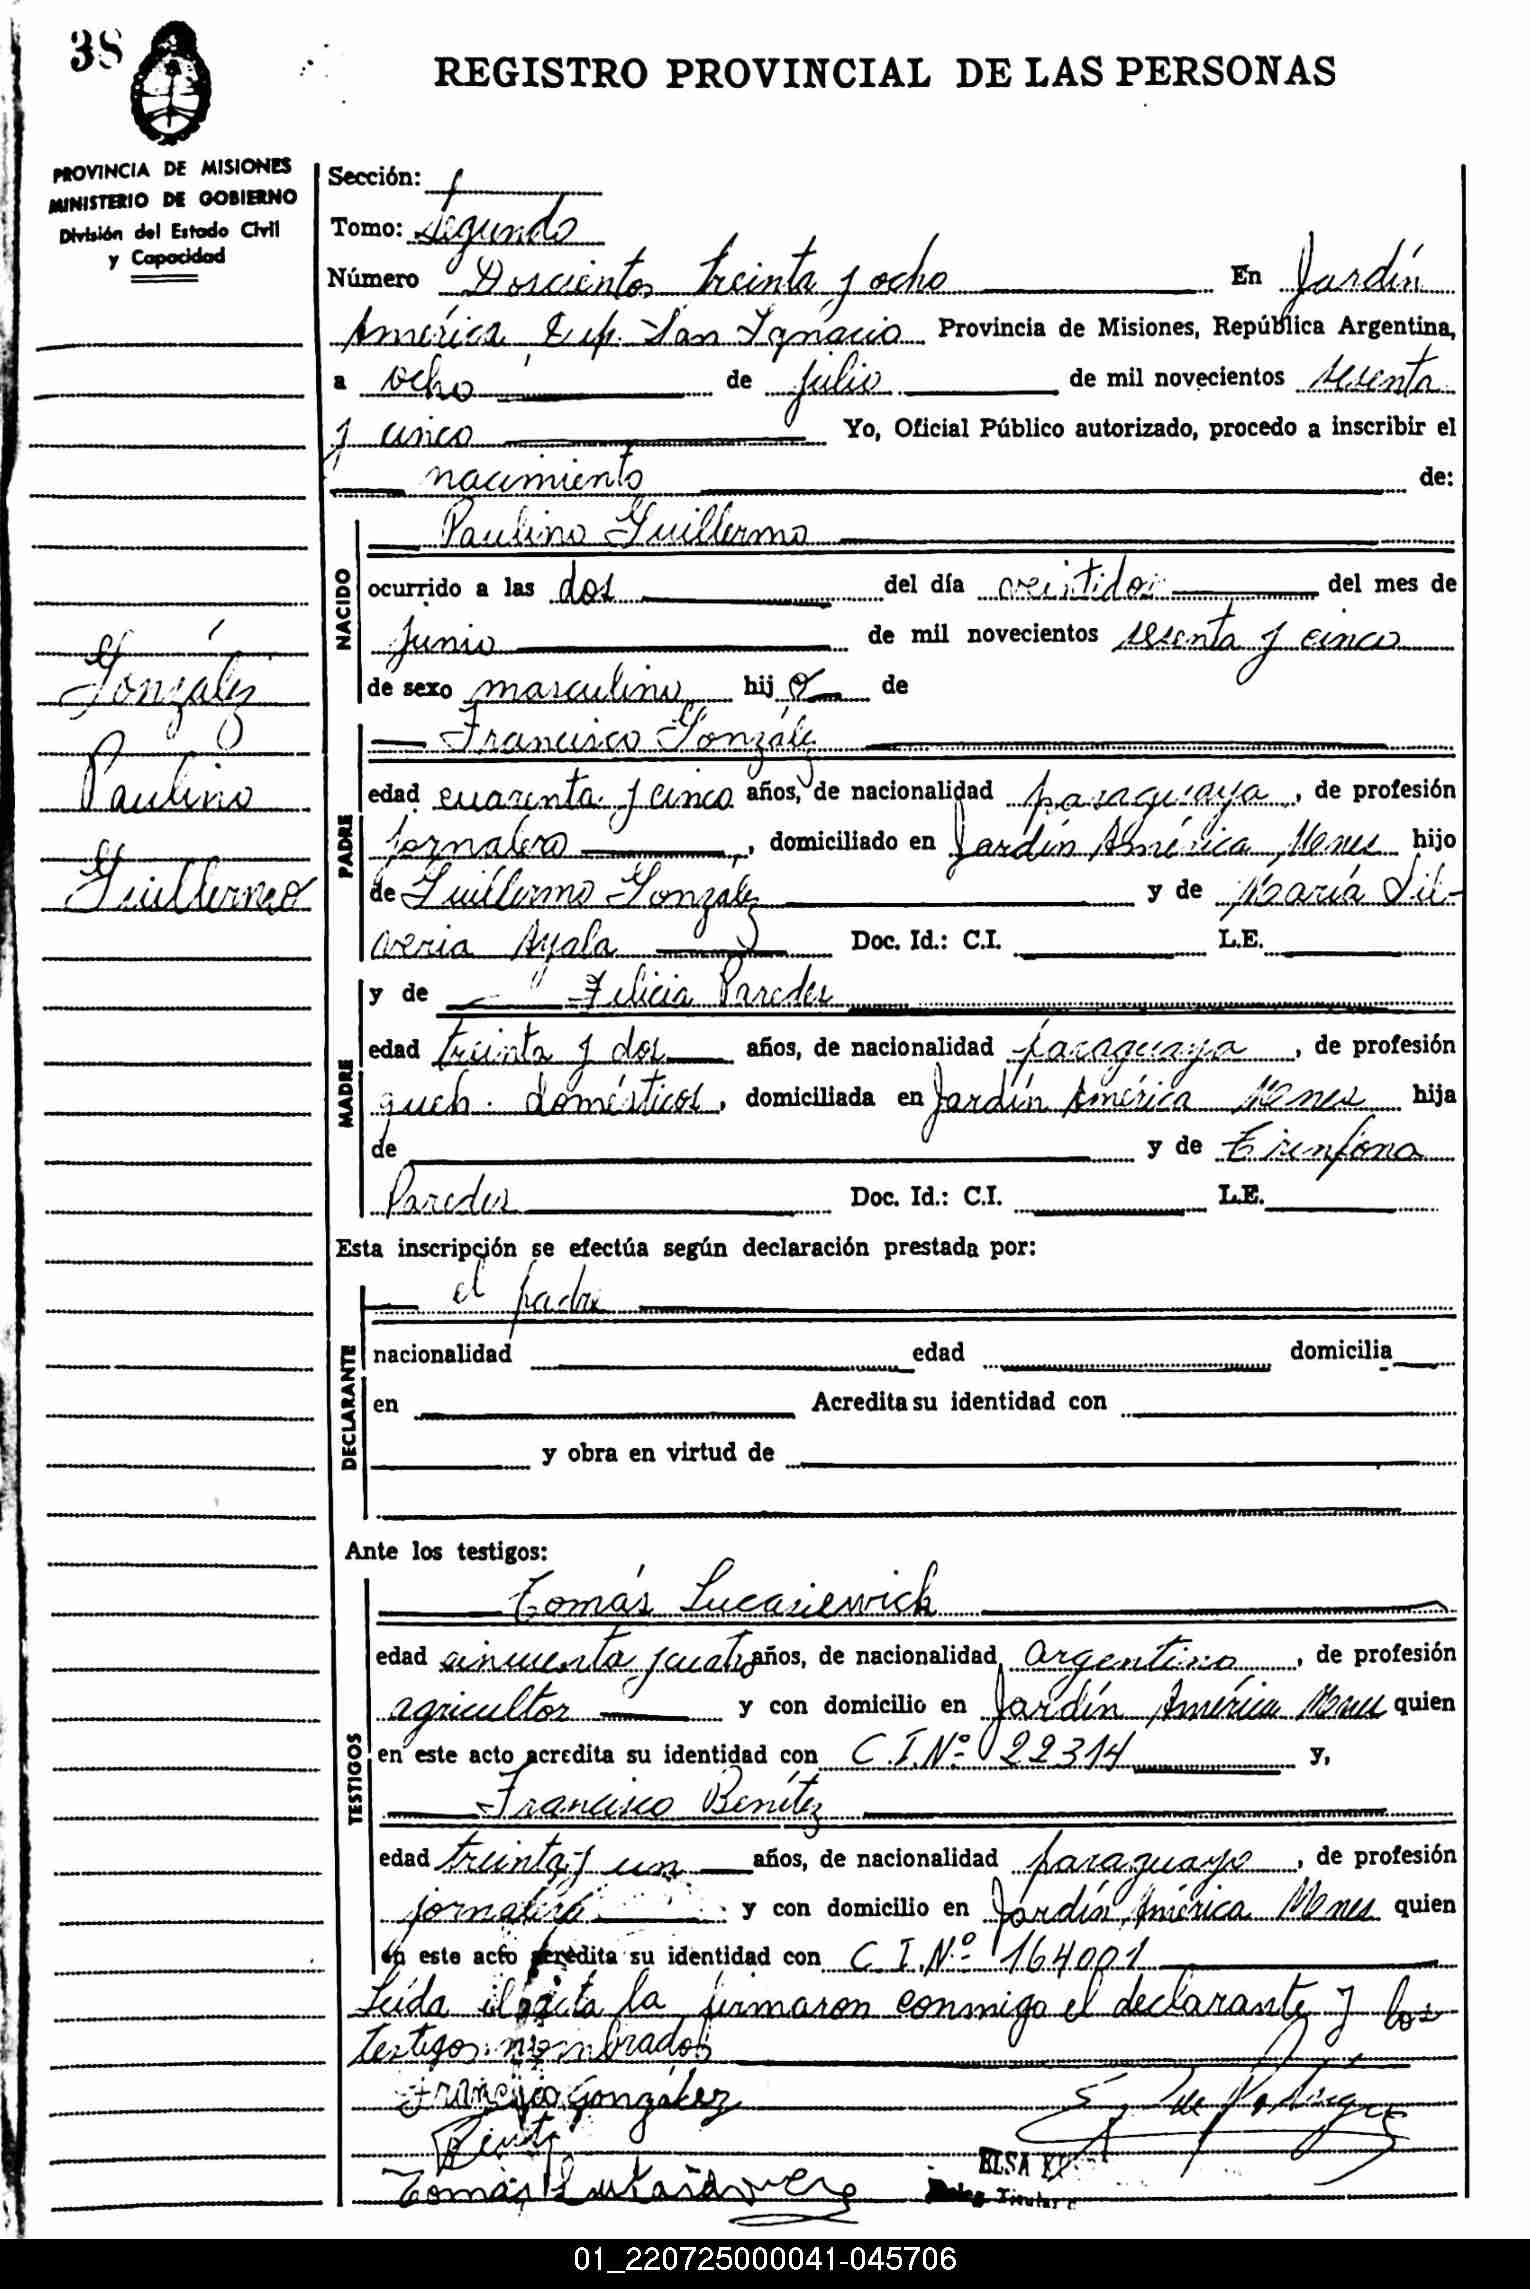 38
REGISTRO PROVINCIAL DE LAS PERSONAS
PROVINCIA DE MISIONES
MINISTERIO DE GOBIERNO
División del Estado Civil
y Capacidad
Sección: 1
Tomo: segundo
Número Doscientos treinta y ocho En Jardín
América, Dep. San Ignacio Provincia de Misiones, República Argentina,
a ocho de julio de mil novecientos sesenta
y cinco Yo, Oficial Público autorizado, procedo a inscribir el
nacimiento de:
Paulino Guillermo
NACIDO
ocurrido a las dos del día veintidos del mes de
junio de mil novecientos sesenta y cinco
de sexo masculino hij o de
González
Paulino
Guillermo
Francisco González
PADRE
edad cuarenta y cinco años, de nacionalidad paraguaya, de profesión
jornalero, domiciliado en Jardín América Mnes hijo
de Guillermo González y de María Sil-
veria Ayala Doc. Id.: C.I. L.E.
y de Felicia Paredes
MADRE
edad treinta y dos años, de nacionalidad paraguaya, de profesión
queh. domésticos, domiciliada en Jardín América Mnes hija
de y de
Paredes Doc. Id.: C.I. L.E.
Esta inscripción se efectúa según declaración prestada por:
el padre
DECLARANTE
nacionalidad edad domicilia
en Acredita su identidad con
y obra en virtud de
Ante los testigos:
Tomás Lucasiewick
TESTIGOS
edad cincuenta y cuatro años, de nacionalidad Argentino, de profesión
agricultor y con domicilio en Jardín América Mnes quien
en este acto acredita su identidad con C.I.Nº 22314 y,
Francisco Benítez
edad treinta y un años, de nacionalidad paraguayo, de profesión
jornalero y con domicilio en Jardín América Mnes quien
en este acto acredita su identidad con C.I.Nº 164001
Leída el acta la firmaron conmigo el declarante y los
testigos nombrados
Francisco González
Tomás
ELSA
01_220725000041-045706